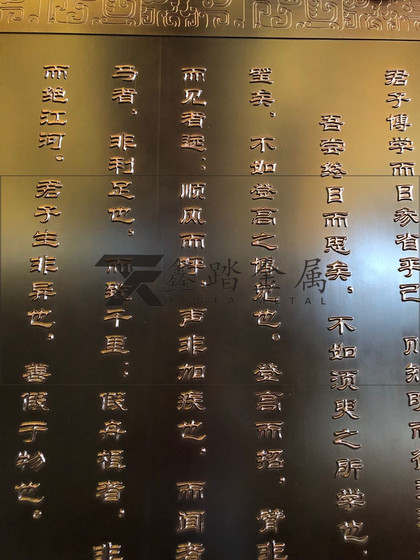 君子博学而日参省乎己 则知明而行
吾尝终日而思矣，不如须臾之所学也
望矣，不如登高之博见也。登高而招，臂非
而见者远；顺风而呼，声非加疾也，而闻者
马者，非利足也，而致千里；假舟楫者，非
而绝江河。君子生非异也，善假于物也。
鑫踏金属